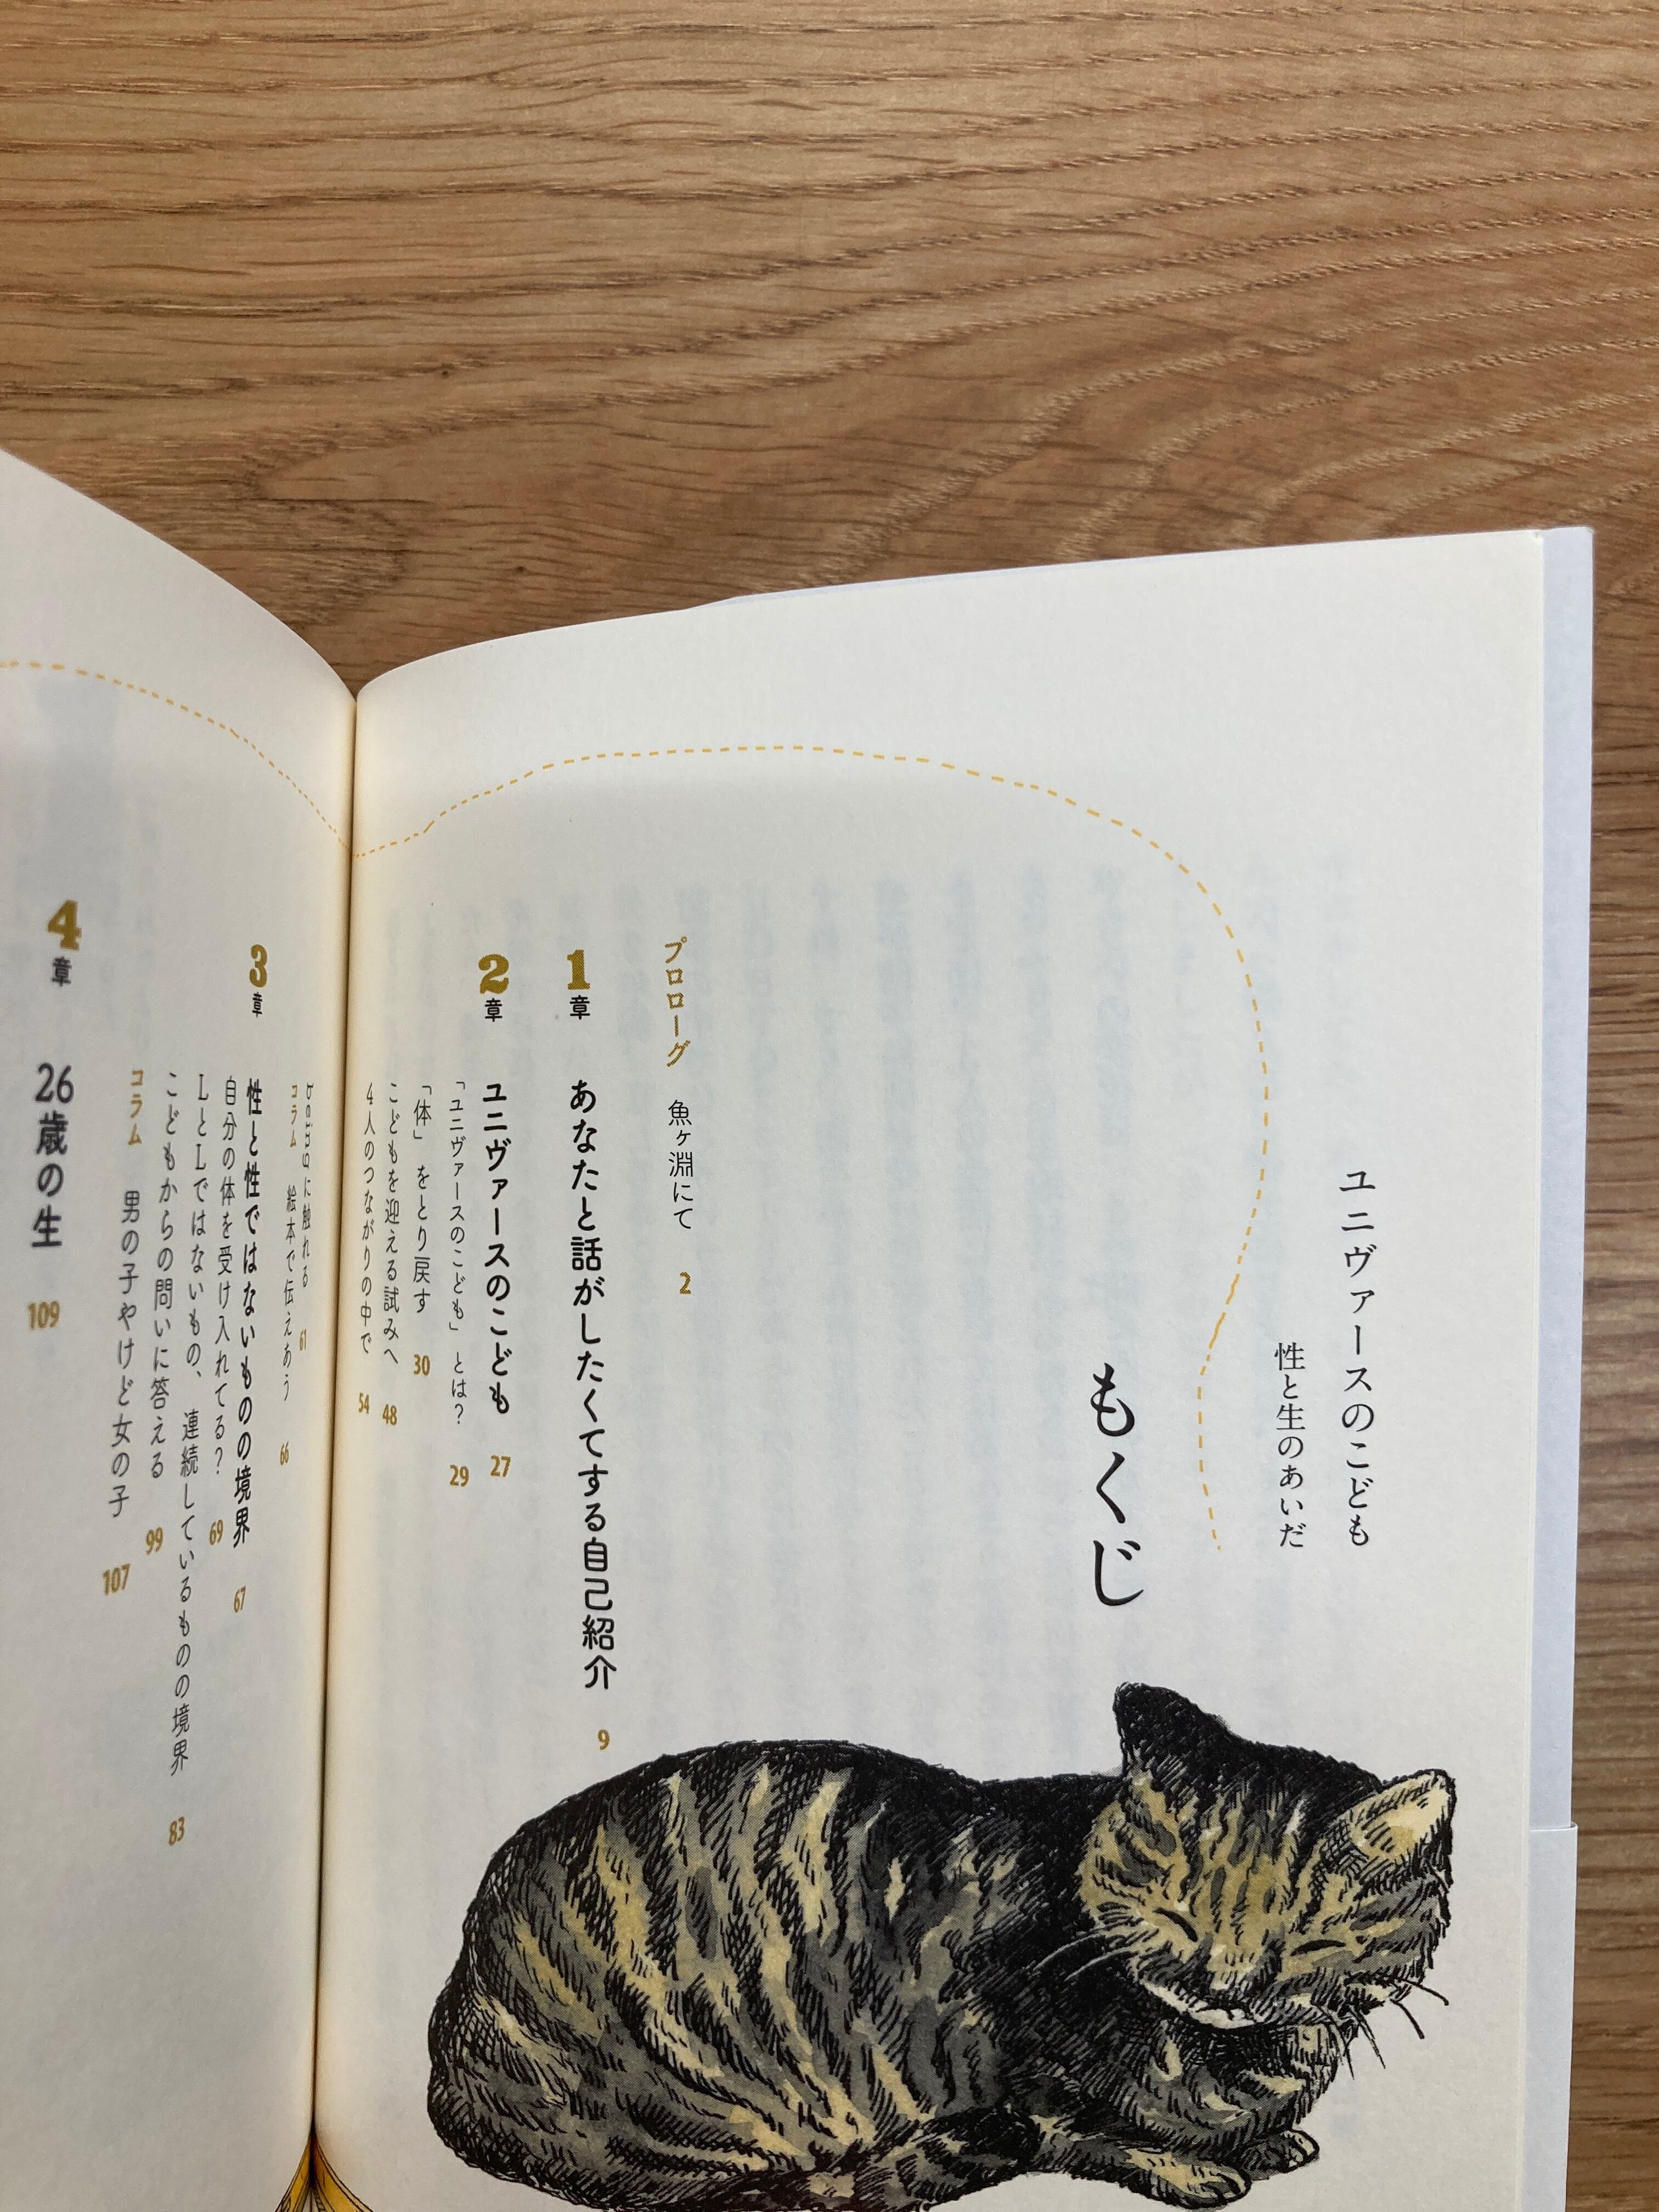 ユニヴァースのこども
性と生のあいだ
もくじ
プロローグ 魚ヶ淵にて 2
1章 あなたと話がしたくてする自己紹介 9
2章 ユニヴァースのこども 27
「ユニヴァースのこども」とは? 29
「体」をとり戻す 30
こどもを迎える試みへ 48
4人のつながりの中で 54
に触れる 61
コラム 絵本で伝えあう 66
3章 性と性ではないものの境界 67
自分の体を受け入れてる? 69
LとLではないもの、連続しているものの境界 83
こどもからの問いに答える 99
コラム 男の子やけど女の子 107
4章 26歳の生 109